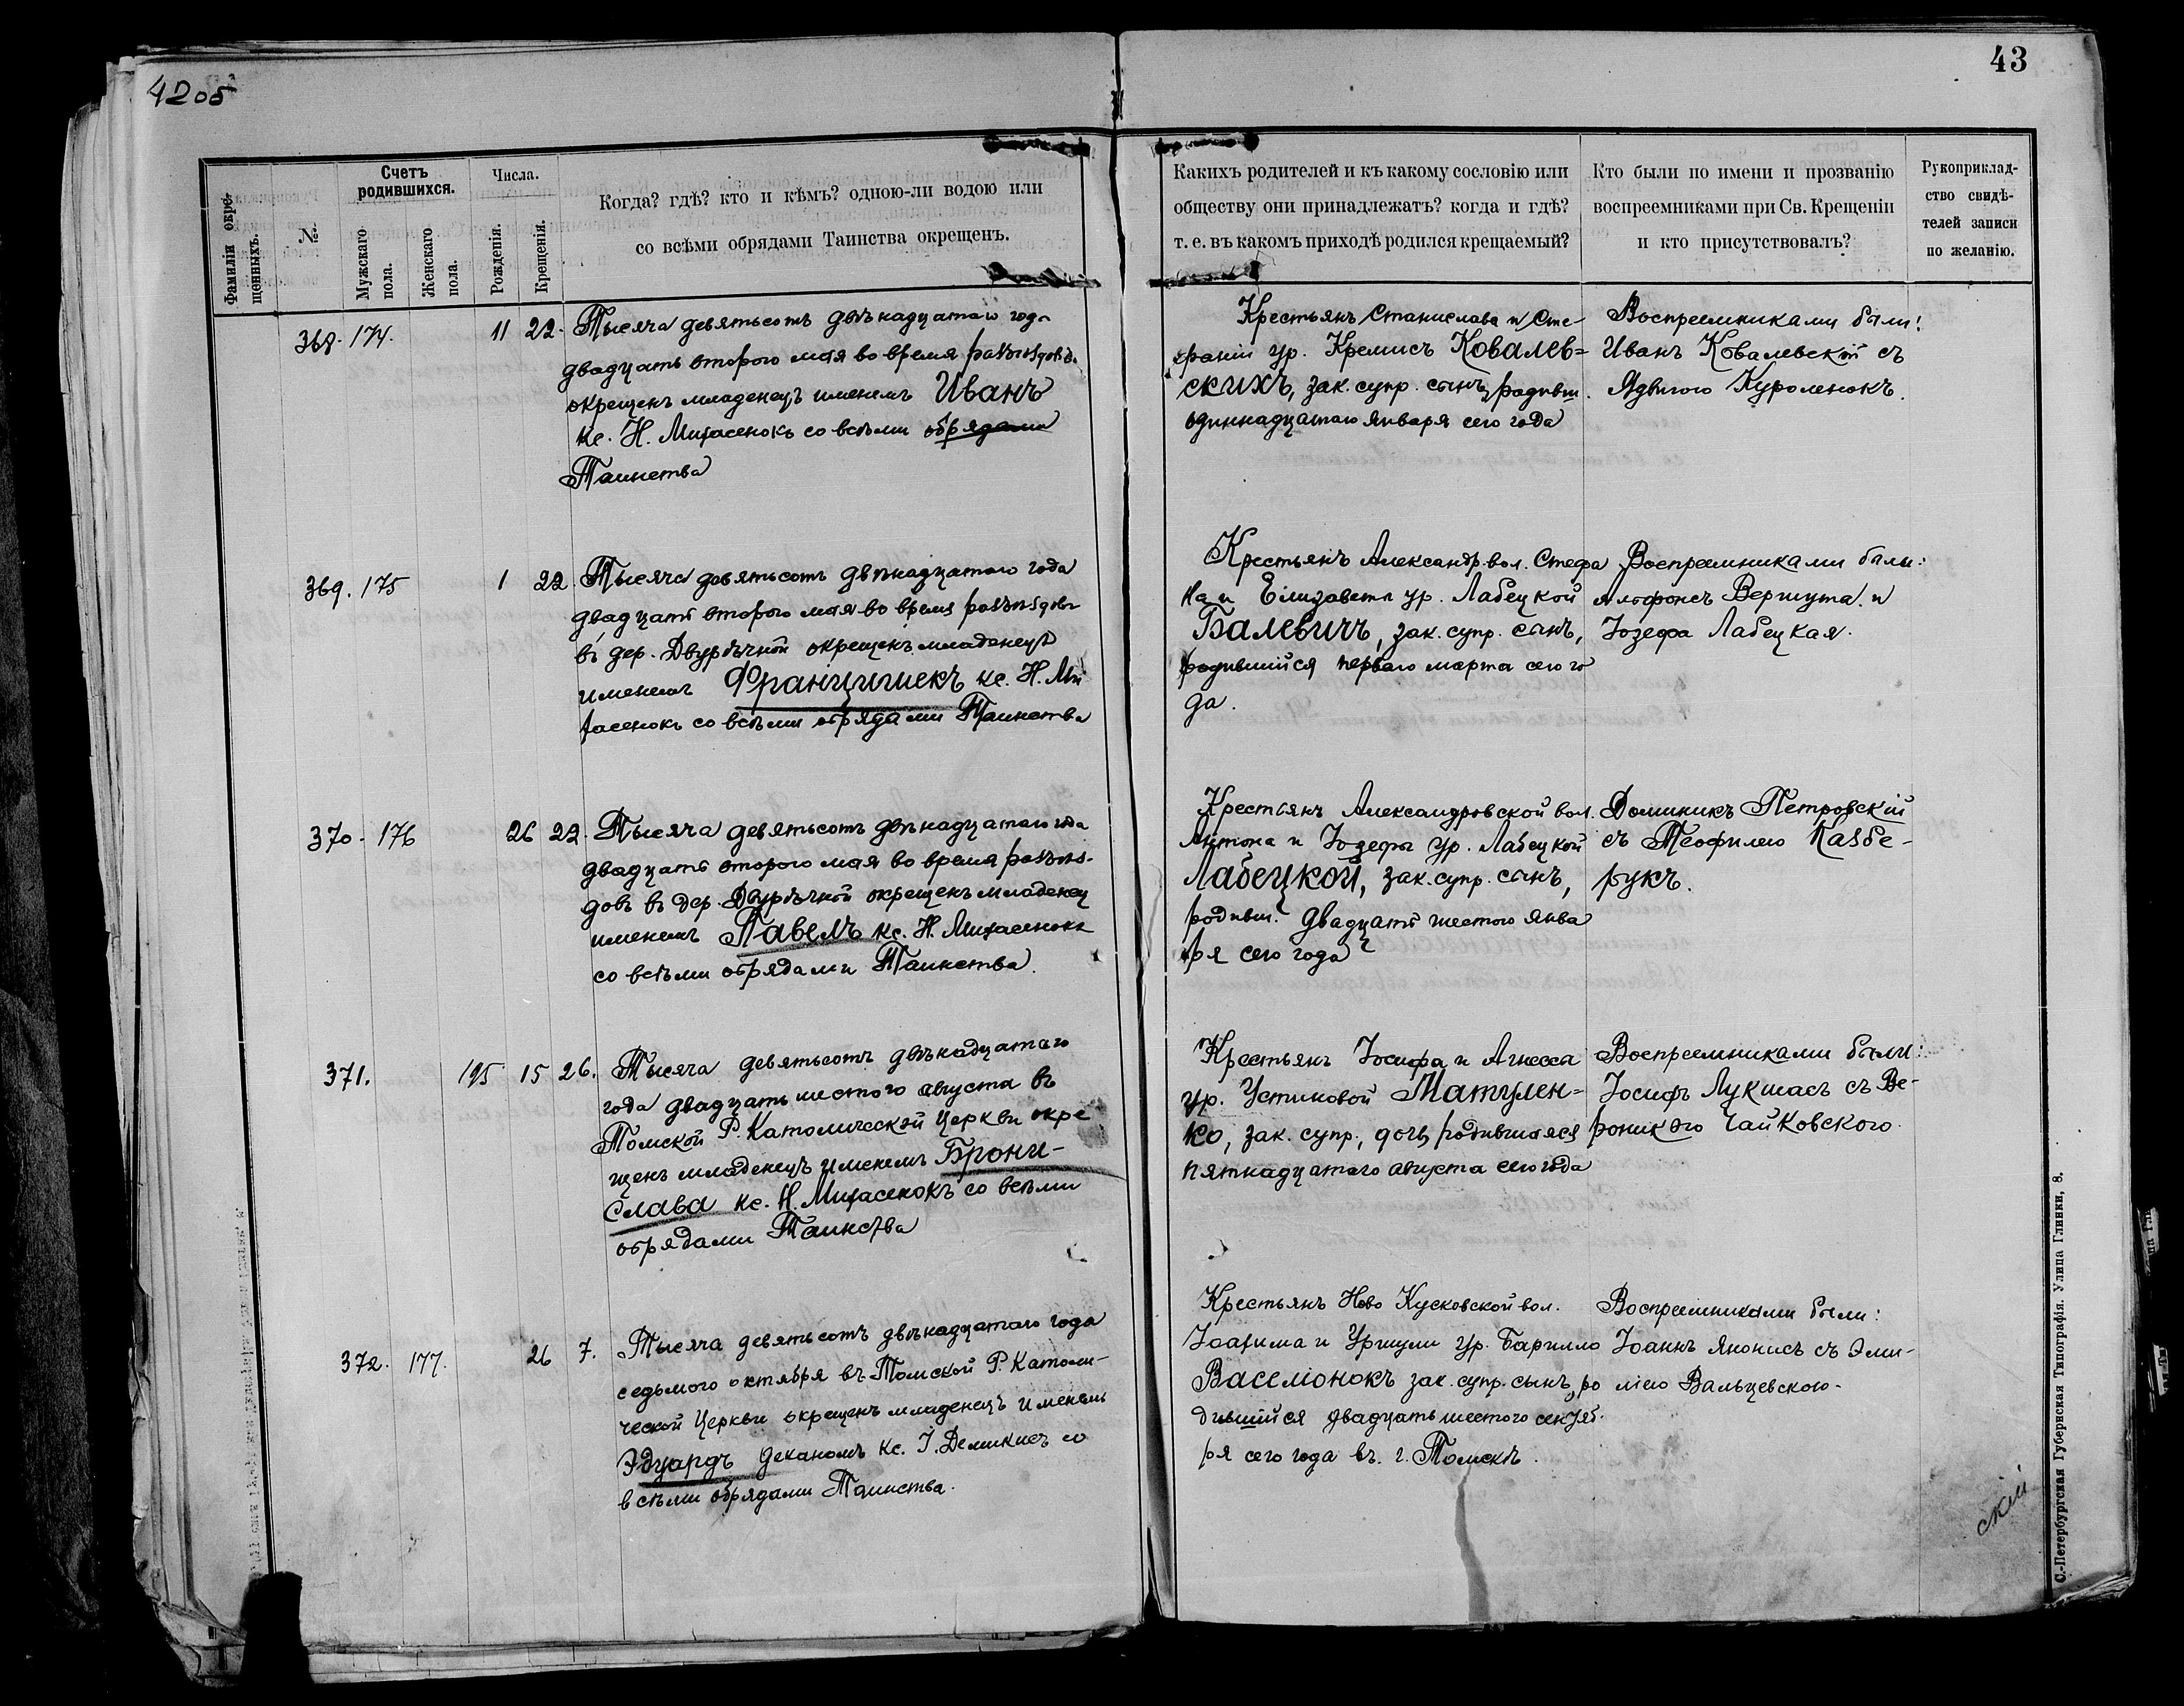 42об
43
Фамиліи окре-
щенныхъ.
№
Счетъ
родившихся.
Мужскаго
пола.
Женскаго
пола.
Числа.
Рожденія.
Крещенія.
Когда? гдѣ? кто и кѣмъ? одною-ли водою или
со всѣми обрядами Таинства окрещенъ.
Какихъ родителей и къ какому сословію или
обществу они принадлежатъ? когда и гдѣ?
т. е. въ какомъ приходѣ родился крещаемый?
Кто были по имени и прозванію
воспреемниками при Св. Крещеніи
и кто присутствовалъ?
Рукоприклад-
ство свидѣ-
телей записи
по желанію.
368. 174. 11 22.
Тысяча девятьсотъ двѣнадцатаго года
двадцать второго мая во время разъѣздовъ
окрещенъ младенецъ именемъ Иванъ
кс. Н. Михасенокъ со всѣми обрядами
Таинства
Крестьянъ Станислава и Сте-
фаніи ур. Кремисъ Ковалев=
скихъ, зак. супр. сынъ, родивш.
одиннадцатаго января сего года
Воспреемниками были:
Иванъ Ковалевской съ
Ядвигою Куроленокъ.
369. 175 1 22
Тысяча девятьсотъ двѣнадцатаго года
двадцать второго мая во время разъѣздовъ
въ дер. Двурѣчной окрещенъ младенецъ
именемъ Францишекъ кс. Н. Ми
хасенокъ со всѣми обрядами Таинства
Крестьянъ Александр. вол. Стефа
на и Елизаветы ур. Лабецкой
Балевичъ, зак. супр. сынъ,
родившійся перваго марта сего го
да.
Воспреемниками были:
Альфонсъ Вершута и
Іозефа Лабецкая.
370. 176 26 22.
Тысяча девятьсотъ двѣнадцатаго года
двадцать второго мая во время разъѣз-
довъ въ дер. Двурѣчной окрещенъ младенец
именемъ Павелъ кс. Н. Михасенокъ
со всѣми обрядами Таинства.
Крестьянъ Александровской вол.
Антона и Іозефы ур. Лабецкой
Лабецкой, зак. супр. сынъ,
родивш. двадцать шестого янва
ря сего года
Доминикъ Петровскій
съ Теофилею Казбе-
рукъ.
371. 195 15 26.
Тысяча девятьсотъ двѣнадцатаго
года двадцать шестого августа въ
Томской Р. Католической Церкви окре
щенъ младенецъ именемъ Брони-
слава кс. Н. Михасенокъ со всѣми
обрядами Таинства
Крестьянъ Іосифа и Агнесса
ур. Устиновой Матулен=
ко, зак. супр., дочь, родившаяся
пятнадцатаго августа сего года
Воспреемниками были:
Іосифъ Лукшасъ съ Ве-
роникою Чайковского.
372. 177. 26 7.
Тысяча девятьсотъ двѣнадцатаго года
седьмого октября въ Томской Р. Католи-
ческой Церкви окрещенъ младенецъ именемъ
Эдуардъ деканомъ кс. І. Демикисъ со
всѣми обрядами Таинства.
Крестьянъ Ново Кусковской вол.
Іоахима и Уршули ур. Барилло
Васеліонокъ зак. супр. сынъ, ро
дившійся двадцать шестого сентяб.
ря сего года въ г. Томскѣ.
Воспреемниками были:
Іоаннъ Янонисъ съ Эми-
ліею Вальцевскою.
скій
С.-Петербургская Губернская Типографія. Улица Глинки, 8.